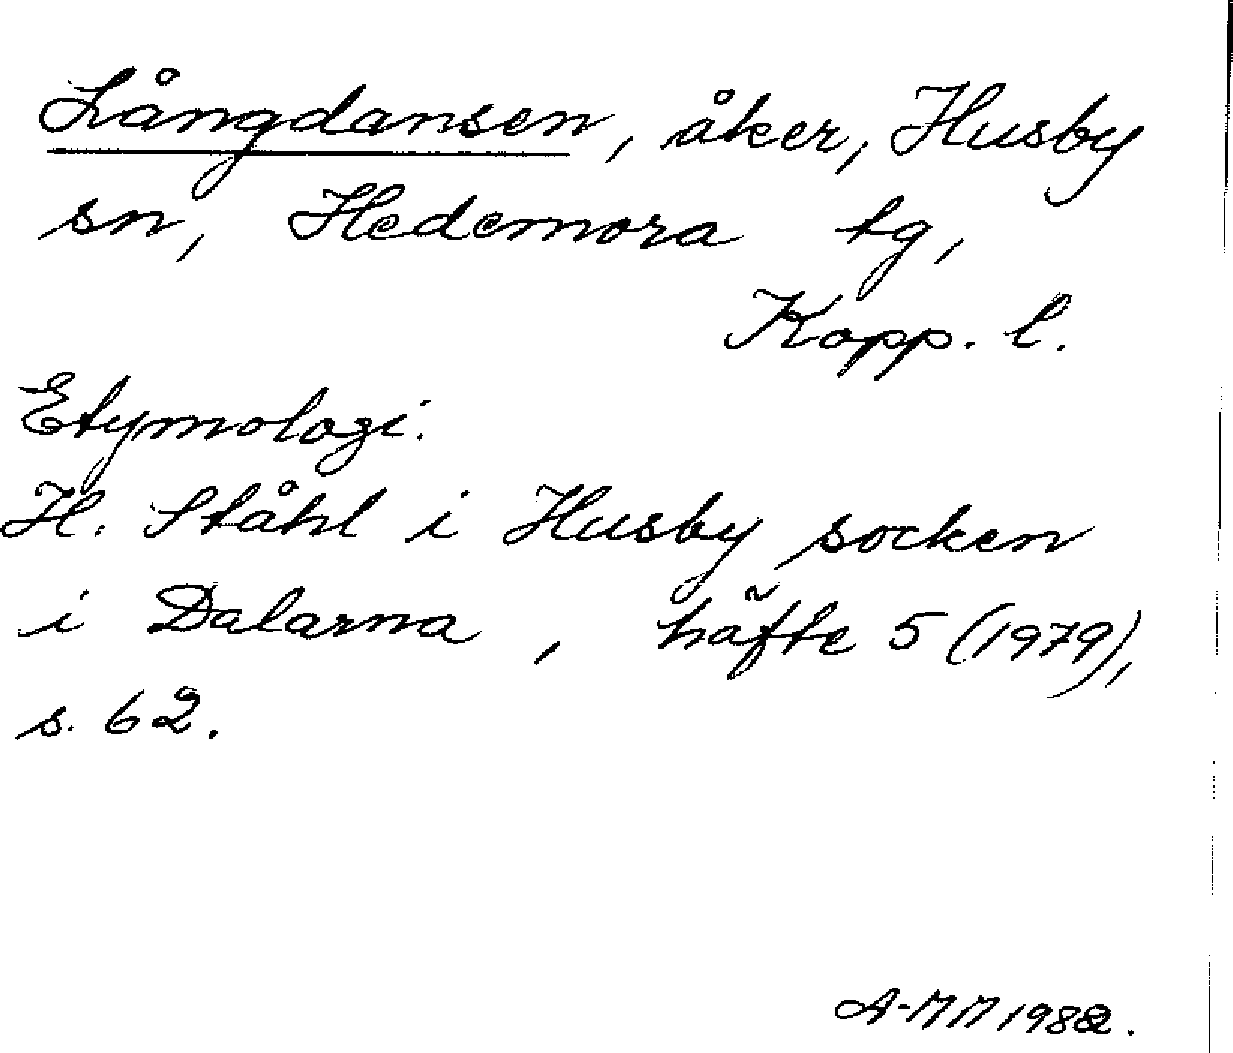 Långdansen, åker, Husby
sn, Hedemora tg,
Kopp. l.
Etymologi:
H. Ståhl i Husby socken
i Dalarna, häfte 5 (1979),
s. 62.
A-MM 1982.